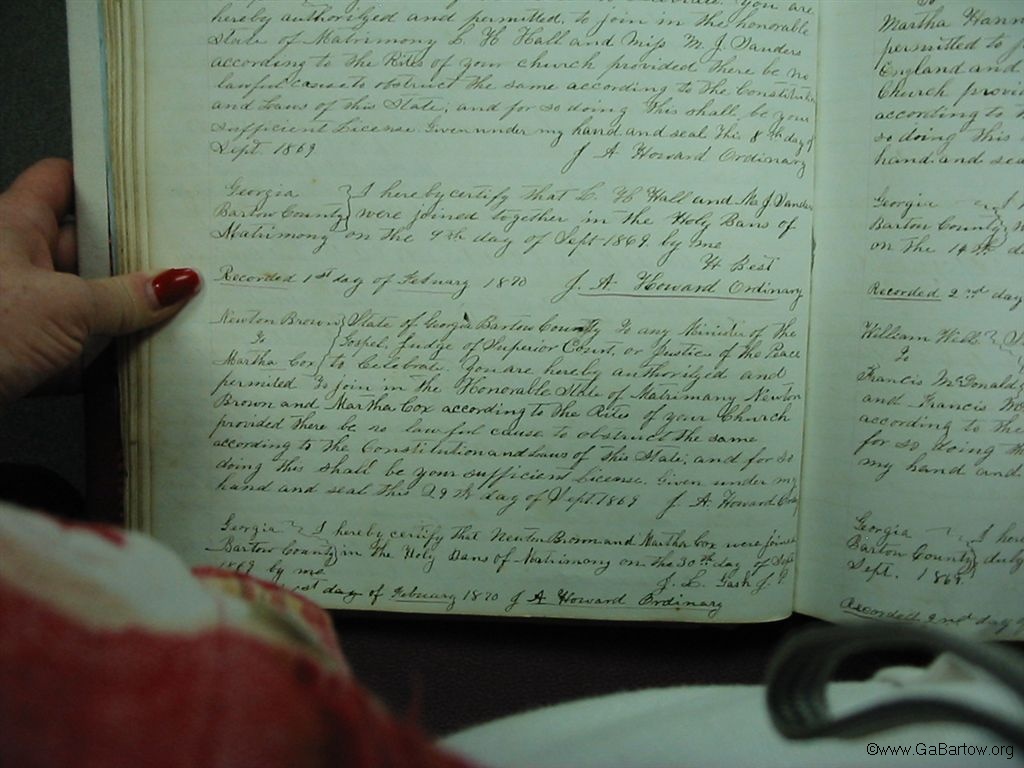 hereby authorilyed and permitted, to join in the honorable
State of Matrimony L. H Hall and Miss M. J. Sanders
according to the Rites of your church provided there be no
lawful cause to obstruct the same according to the Constitution
and Laws of this State; and for so doing this shall be your
sufficient License. Given under my hand and seal this 8th day of
Sept. 1869 J A Howard Ordinary
Georgia I hereby certify that L. H Hall and M J. Sanders
Bartow County were joined together in the Holy Bans of
Matrimony on the 9th day of Sept 1869 by me
H Best
Recorded 1st day of Febuary 1870 J. A. Howard Ordinary
Newton Brown State of Georgia Bartow County To any Minister of the
To Gospel, Judge of Superior Court, or Justice of the Peace
Martha Cox to Celebrate. You are hereby authorilyed and
permited To join in the Honorable State of Matrimany Newton
Brown and Martha Cox according to the Rites of your Church
provided there be no lawful cause to obstruct the same
according to the Constitution and Laws of this State; and for so
doing this shall be your sufficient License. Given under my
hand and seal this 29th day of Sept 1869 J. A. Howard Ordy
Georgia I hereby certify that Newton Brown and Martha Cox were joined
Bartow County in the Holy Bans of Matrimony on the 30th day of Sept
1869 by me J. L. Gash J. P
1st day of February 1870 J A Howard Ordinary
To
Martha Hann
permitted to j
England and
Church provi
according to
so doing this
hand and sea
Georgia I
Bartow County
on the 14th d
Recorded 2nd day
William Will
To
Francis McDonald
and Francis Mc
according to the
for so doing th
my hand and
Georgia I here
Bartow County duly
Sept. 1869
Recorded 2nd day o
©www.GaBartow.org